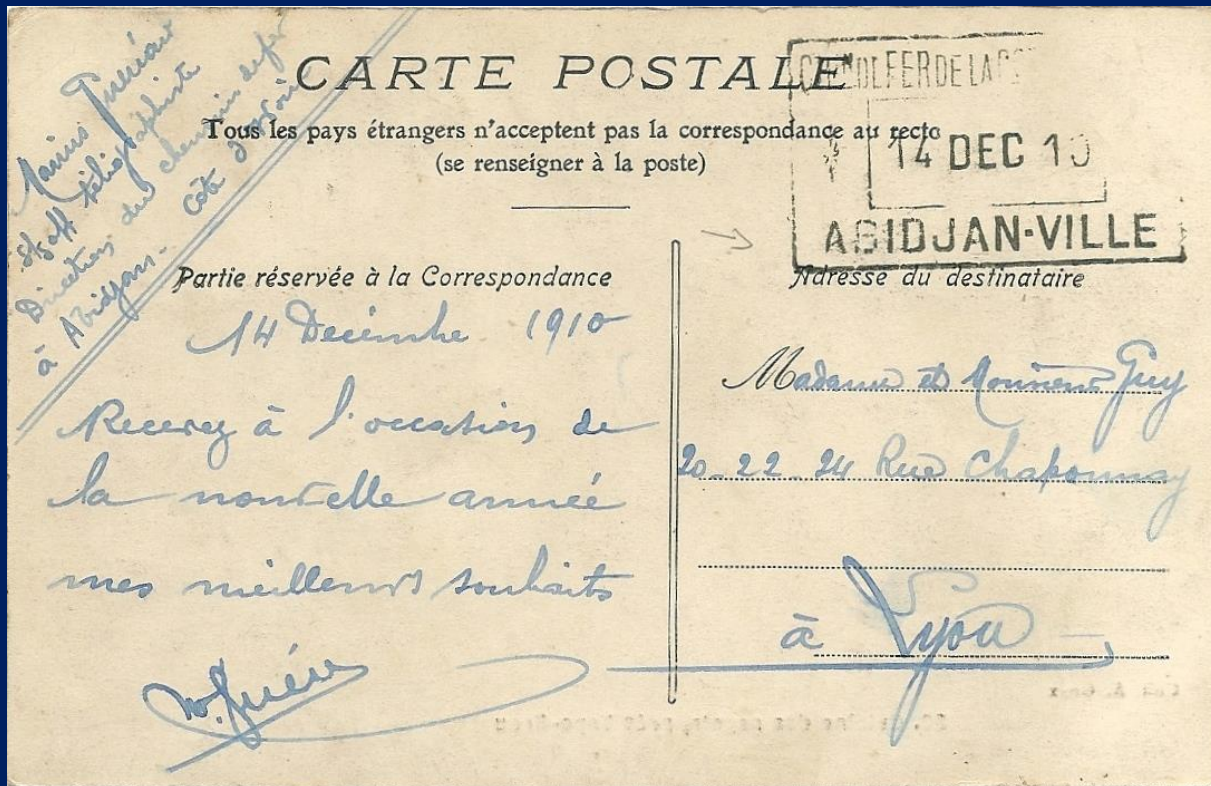 Marius
S/off télégraphiste
Direction du chemin de fer
à Abidjan - Côte d'Ivoire
CARTE POSTALE
Tous les pays étrangers n'acceptent pas la correspondance au recto
(se renseigner à la poste)
FER DE LA
14 DEC 10
ABIDJAN-VILLE
Partie réservée à la Correspondance
Adresse du destinataire
14 Décembre 1910
Recevez à l'occasion de
la nouvelle année
mes meilleurs souhaits
Madame et Monsieur Guy
20-22-24 Rue Chaponnay
à Lyon